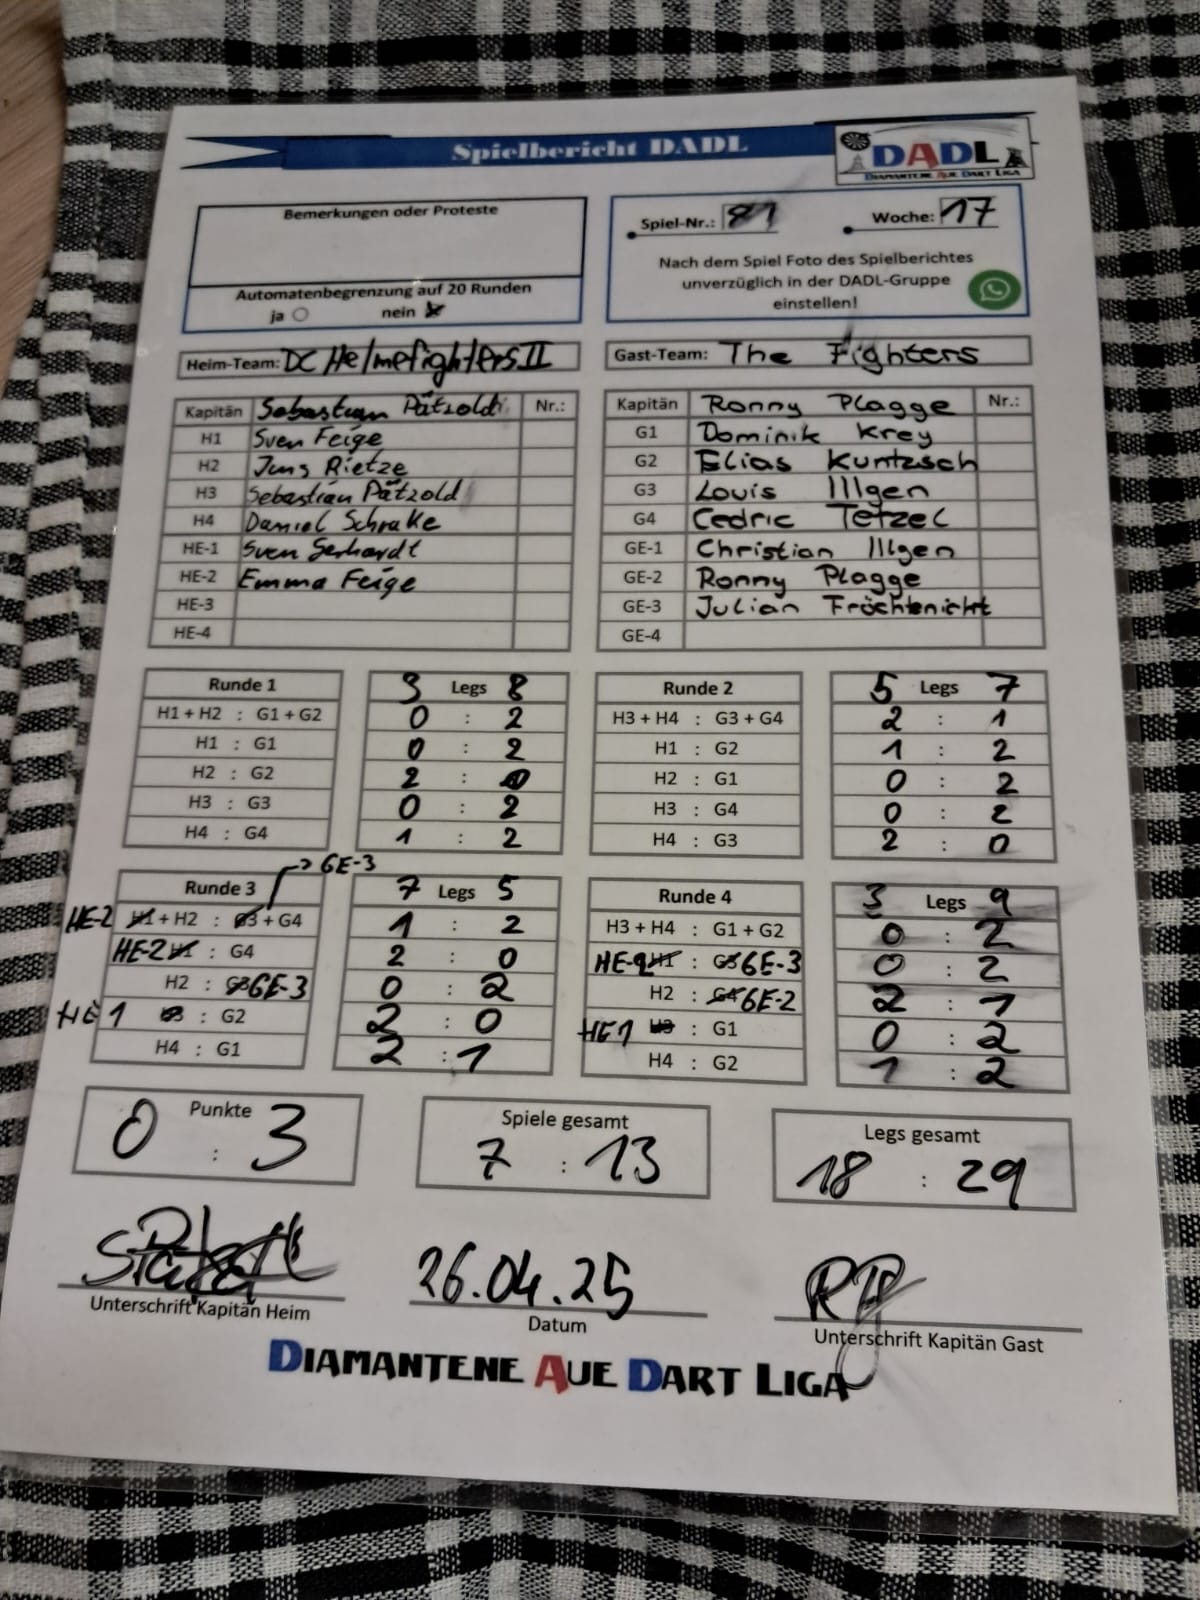 Spielbericht DADL
DADL
DIAMANTENE AUE DART LIGA
Bemerkungen oder Proteste
Automatenbegrenzung auf 20 Runden
ja nein
Spiel-Nr.: 81 Woche: 17
Nach dem Spiel Foto des Spielberichtes
unverzüglich in der DADL-Gruppe
einstellen!
Heim-Team: DC Helmefighters II
Gast-Team: The Fighters
Kapitän Sebastian Pätzold Nr.:
H1 Sven Feige
H2 Jens Rietze
H3 Sebastian Pätzold
H4 Daniel Schrake
HE-1 Sven Gerhardt
HE-2 Emma Feige
HE-3
HE-4
Kapitän Ronny Plagge Nr.:
G1 Dominik Krey
G2 Elias Kuntzsch
G3 Louis Illgen
G4 Cedric Tetzel
GE-1 Christian Illgen
GE-2 Ronny Plagge
GE-3 Julian Fröchtenicht
GE-4
Runde 1 3 Legs 8
H1 + H2 : G1 + G2 0 : 2
H1 : G1 0 : 2
H2 : G2 2 : 0
H3 : G3 0 : 2
H4 : G4 1 : 2
Runde 2 5 Legs 7
H3 + H4 : G3 + G4 2 : 1
H1 : G2 1 : 2
H2 : G1 0 : 2
H3 : G4 0 : 2
H4 : G3 2 : 0
GE-3
Runde 3 7 Legs 5
HE-2 H1 + H2 : G3 + G4 1 : 2
HE-2 H1 : G4 2 : 0
H2 : G3 GE-3 0 : 2
HE1 H3 : G2 2 : 0
H4 : G1 2 : 1
Runde 4 3 Legs 9
H3 + H4 : G1 + G2 0 : 2
HE-2 H1 : G3 GE-3 0 : 2
H2 : G4 GE-2 2 : 1
HE1 H3 : G1 0 : 2
H4 : G2 1 : 2
Punkte
0 : 3
Spiele gesamt
7 : 13
Legs gesamt
18 : 29
26.04.25
Unterschrift Kapitän Heim
Datum
Unterschrift Kapitän Gast
DIAMANTENE AUE DART LIGA